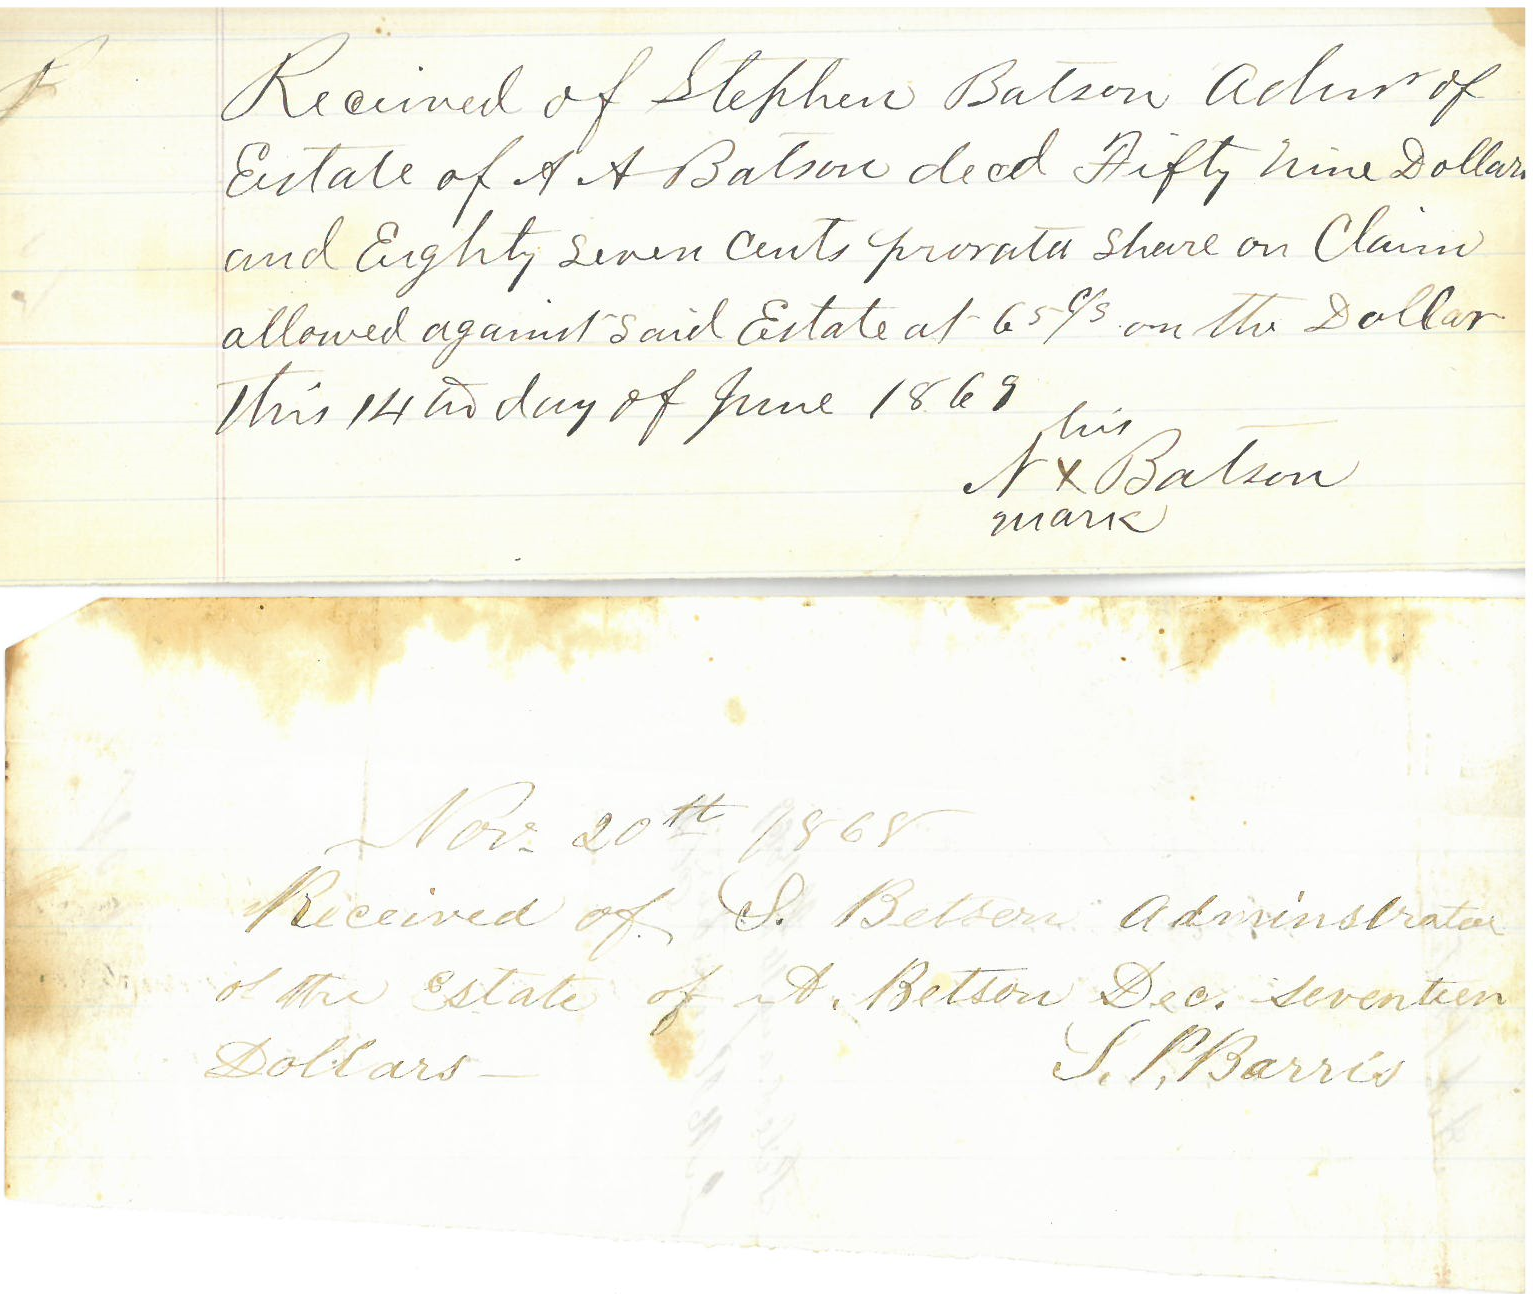 Received of Stephen Batson Admr of
Estate of A A Batson decd Fifty Nine Dollars
and Eighty Seven Cents prorata share on Claim
allowed against said Estate at 65 c/s on the Dollar
This 14th day of June 1869
his
N x Batson
mark
Nov. 20th 1868
Received of S. Betson Adminstrator
of the Estate of A. Betson Dec. seventeen
Dollars —
S. P. Barris